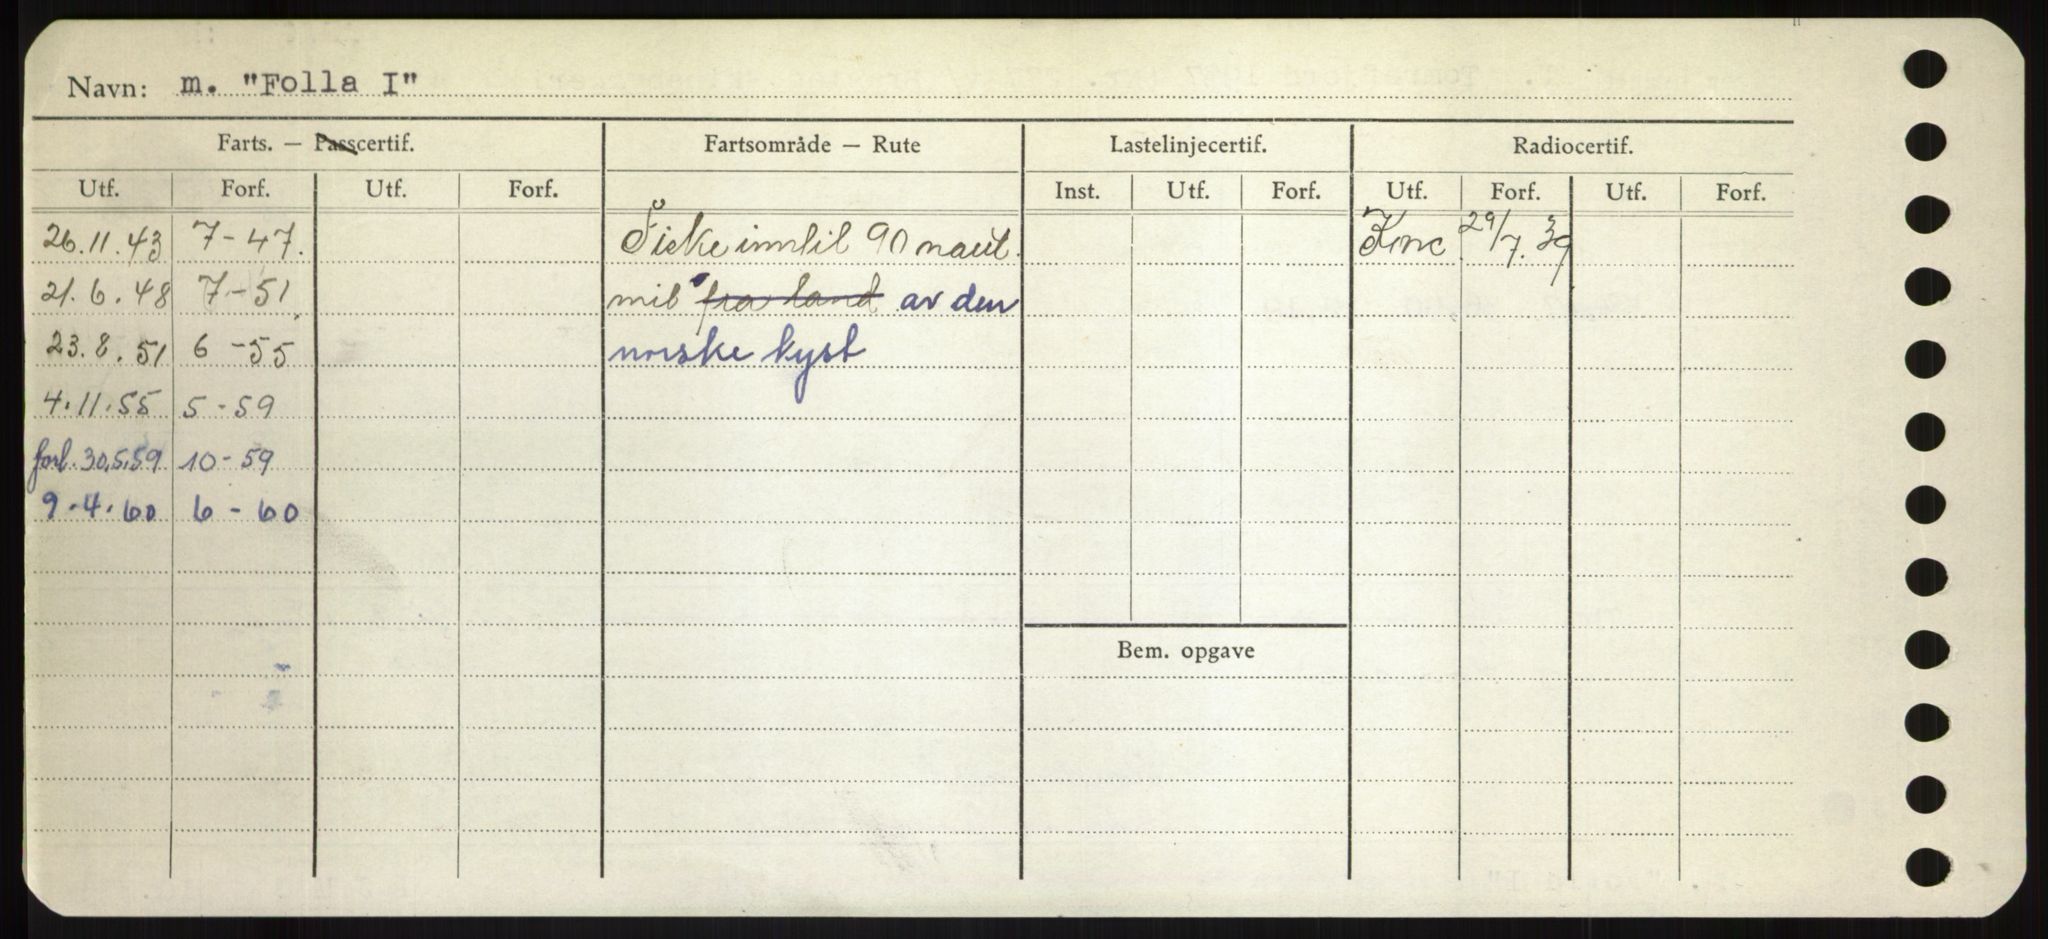 Navn: m. "Folla I"
Farts. — Passcertif. Fartsområde — Rute Lastelinjecertif. Radiocertif.
Utf. Forf. Utf. Forf. Inst. Utf. Forf. Utf. Forf. Utf. Forf.
26.11.43 7-47. Fiske inntil 90 naut. 29/7.39
21.6.48 7-51. mil fra land av den
23.8.51 6-55 norske kyst
4.11.55 5-59
forl. 30.5.59 10-59
9-4-60 6-60
Bem. opgave